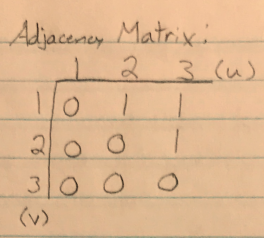 Adjacency Matrix:
1 2 3 (u)
1 0 1 1
2 0 0 1
3 0 0 0
(v)